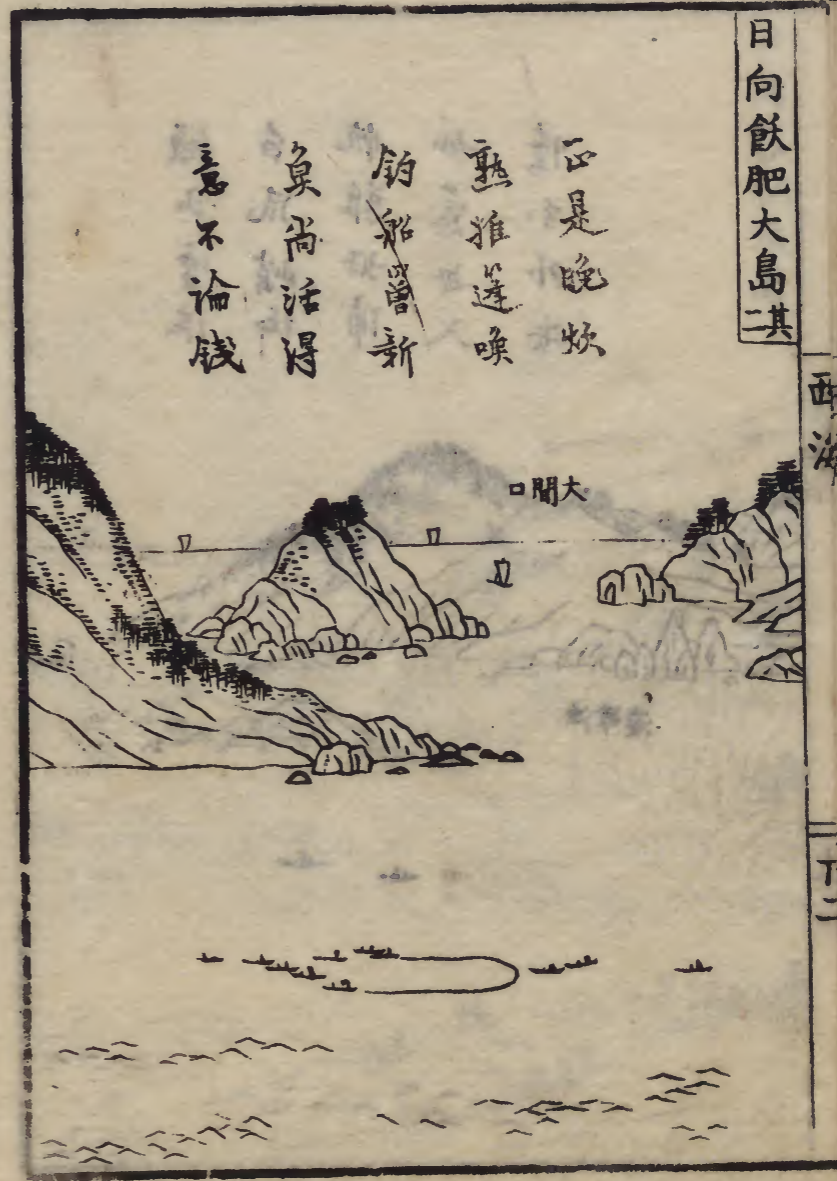 日向飫肥大島其二
正是晩炊
熟推蓬喚
釣船嘗新
魚尚活得
意不論錢
大間口
西海